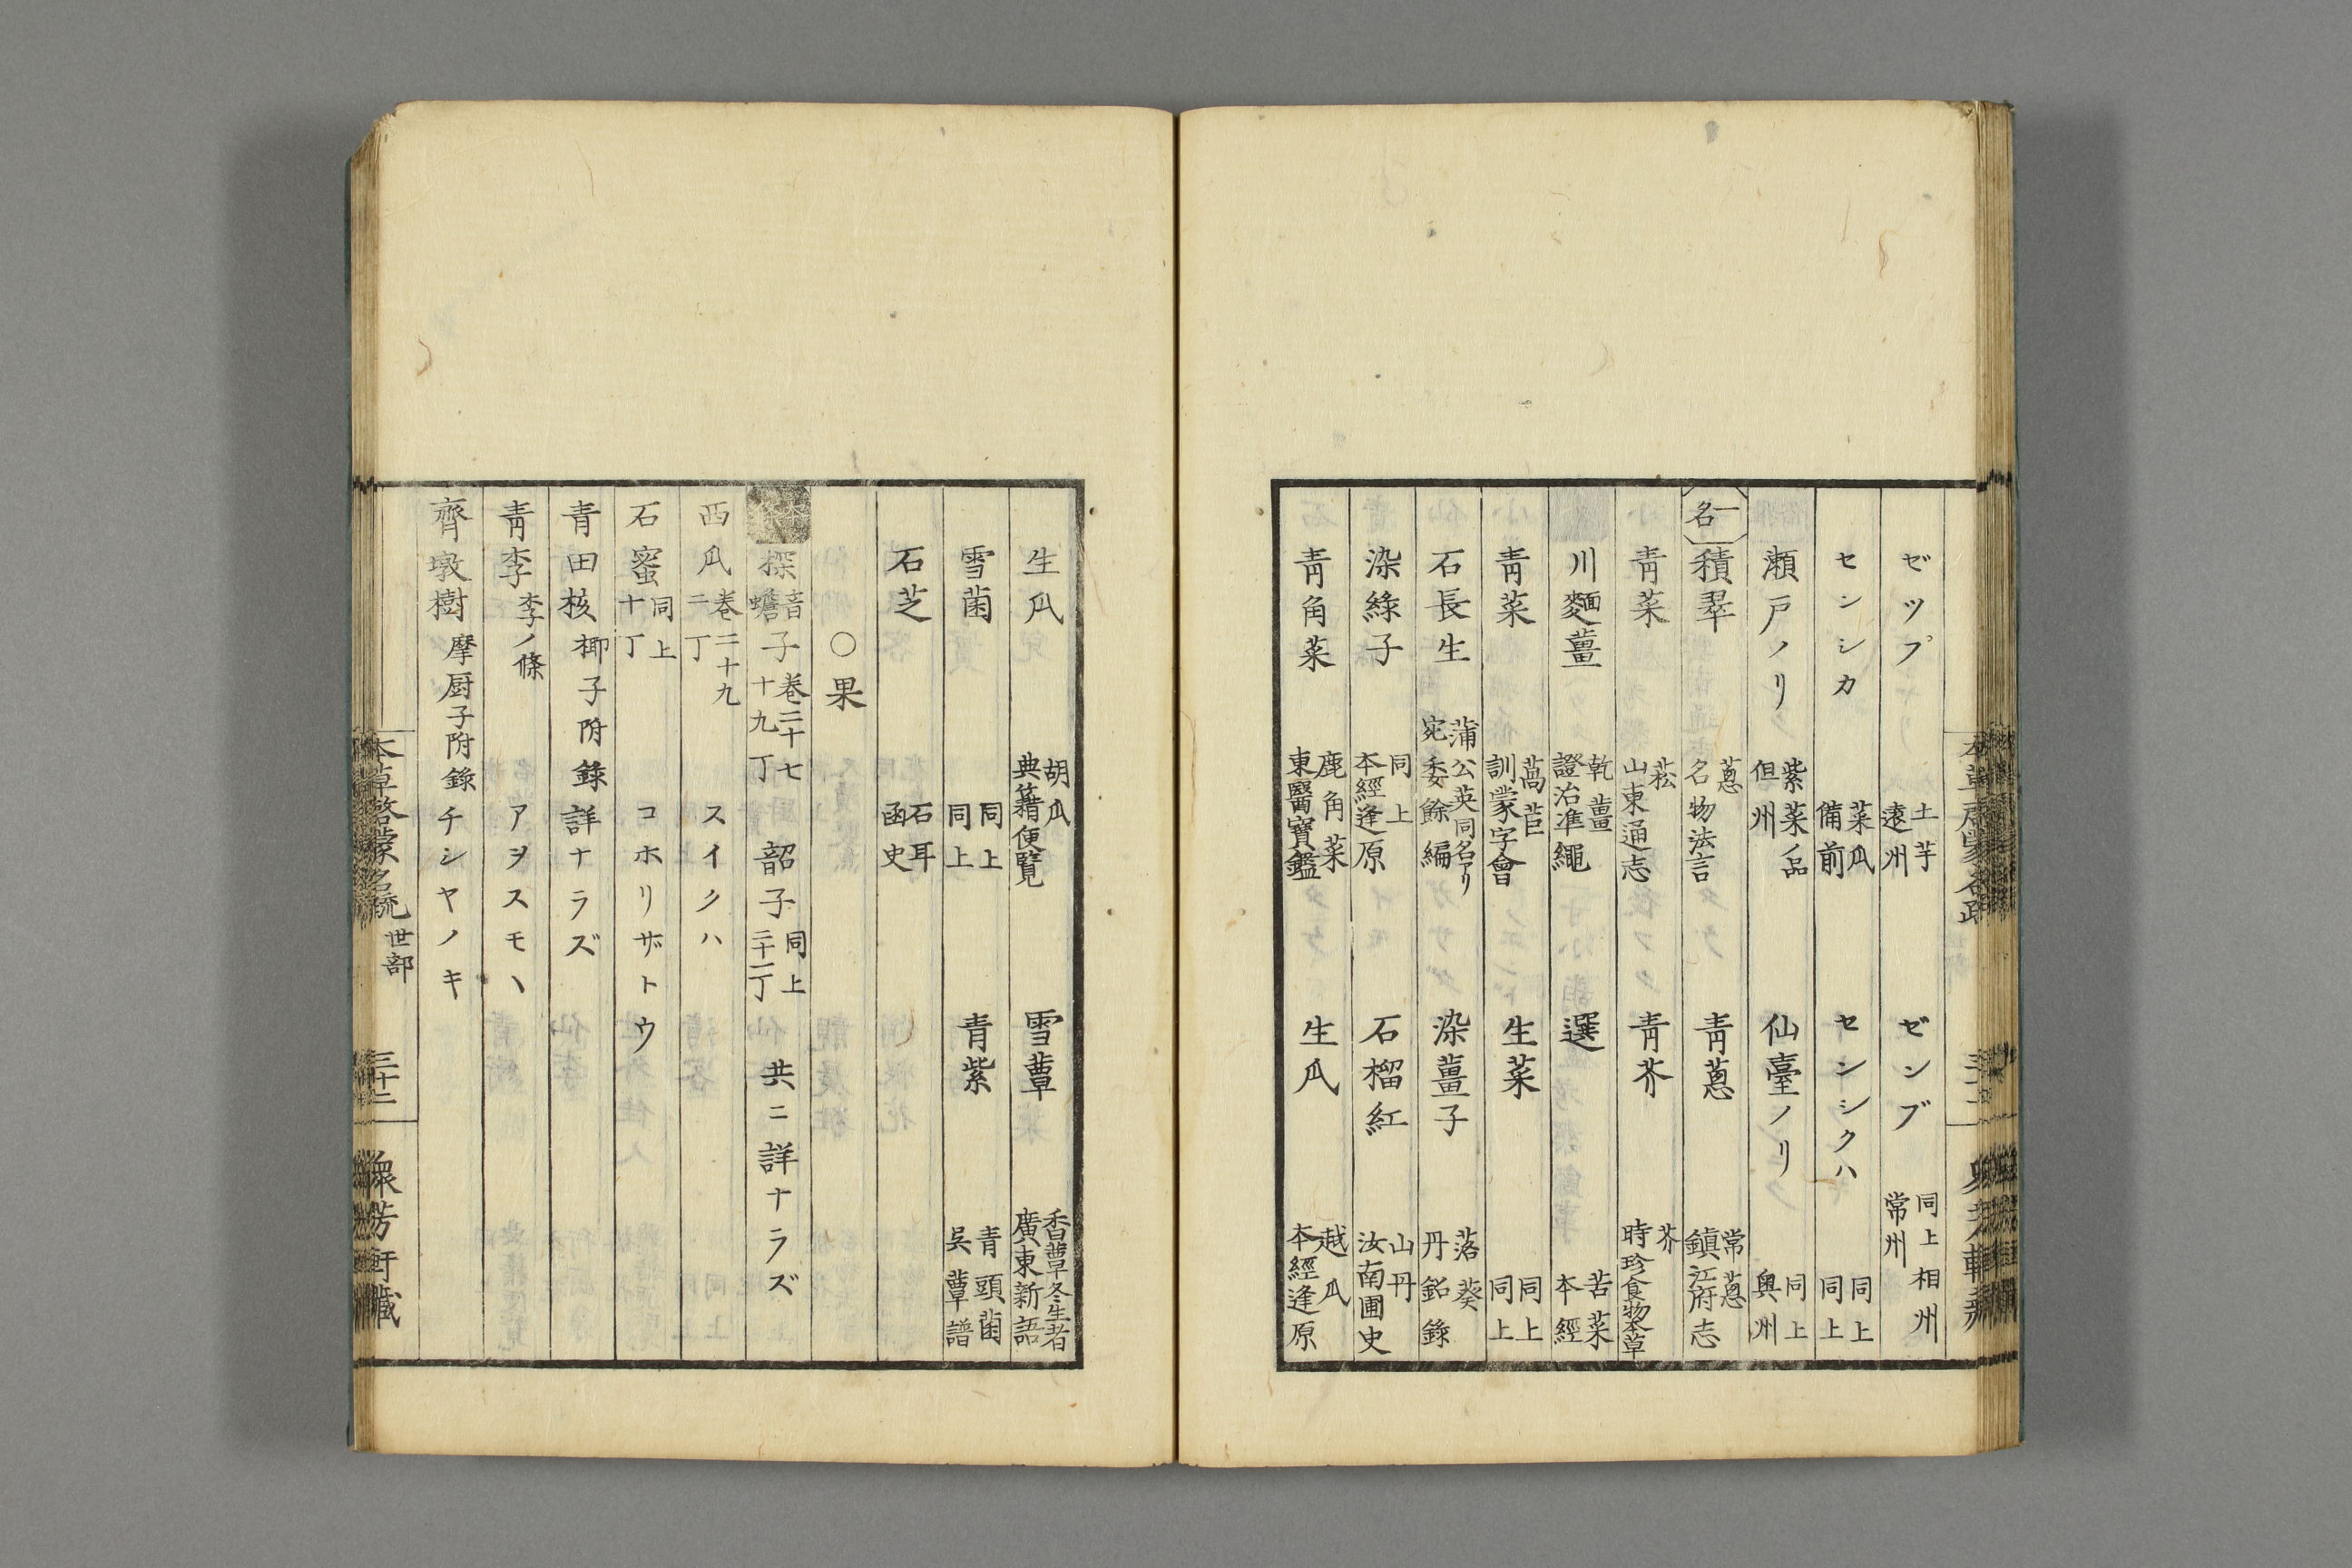 ゼツプ 土芋 遠州 ゼンブ 同上相州 常州
センシカ 菜瓜 備前 センシクハ 同上 同上
瀬戸ノリ 紫菜ノ品 但州 仙臺ノリ 同上 奥州
一名 積翠 蔥 名物法言 靑蔥 常蔥 鎭江府志
靑菜 菘 山東通志 靑芥 芥 時珍食物本草
川麵薑 乾薑 證治準繩 選 苦菜 本經
靑菜 萵苣 訓蒙字會 生菜 同上 同上
石長生 蒲公英同名アリ 宛委餘編 染薑子 落葵 丹鉛錄
染綠子 同上 本經逢原 石榴紅 山丹 汝南圃史
靑角菜 鹿角菜 東醫寶鑑 生瓜 越瓜 本經逢原
生瓜 胡瓜 典籍便覽 雪蕈 香蕈冬生者 廣東新語
雪菌 同上 同上 青紫 青頭菌 吳蕈譜
石芝 石耳 函史
○果
探音蟾子 卷二十七 十九丁 韶子 同上 二十一丁 共ニ詳ナラズ
西瓜 卷二十九 二丁 スイクハ
石蜜 同上 十丁 コホリザトウ
青田核 椰子附錄 詳ナラズ
靑李 李ノ條 アヲスモヽ
齊墩樹 摩厨子附錄 チシヤノキ
本草啓蒙名疏 世部 三十二 衆芳軒藏